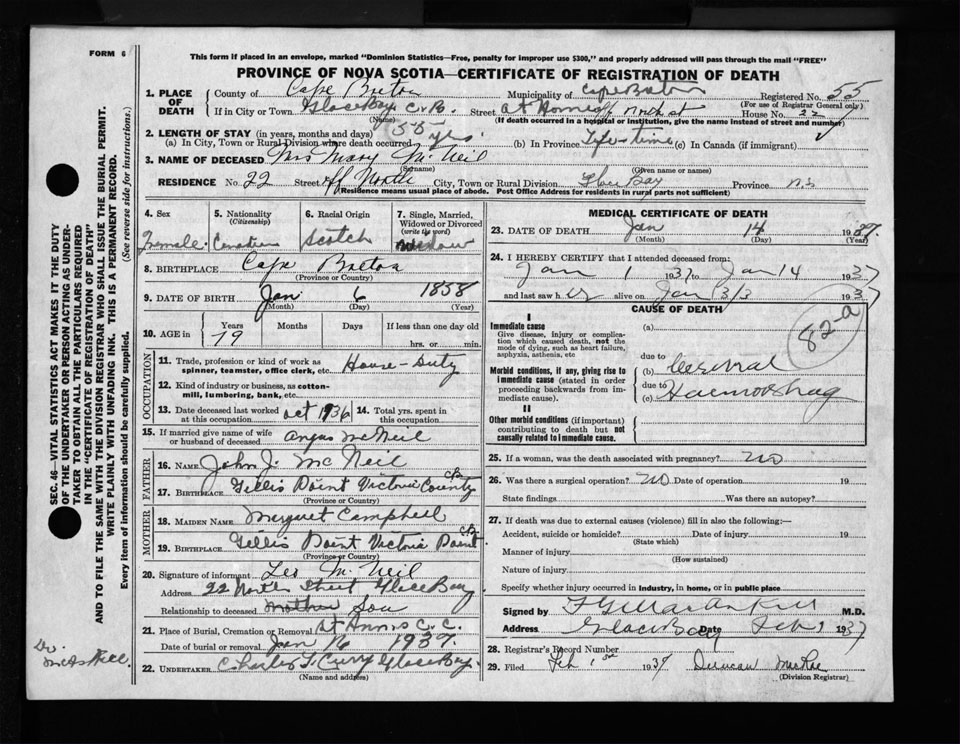 FORM 6
This form if placed in an envelope, marked "Dominion Statistics—Free, penalty for improper use $300," and properly addressed will pass through the mail "FREE"
PROVINCE OF NOVA SCOTIA—CERTIFICATE OF REGISTRATION OF DEATH
1. PLACE OF DEATH County of Cape Breton Municipality of Cape Breton Registered No. 55
(For use of Registrar General only)
If in City or Town Glace Bay C.B. Street at Home off North st House No. 22
(Name) (If death occurred in a hospital or institution, give the name instead of street and number)
2. LENGTH OF STAY (in years, months and days)
(a) In City, Town or Rural Division where death occurred 55 yrs. (b) In Province Life time (c) In Canada (if immigrant)
3. NAME OF DECEASED Mrs Mary McNeil
(Surname) (Given name or names)
RESIDENCE No. 22 Street off North City, Town or Rural Division Glace Bay Province N.S
(Residence means usual place of abode. Post Office Address for residents in rural parts not sufficient)
4. Sex 5. Nationality (Citizenship) 6. Racial Origin 7. Single, Married, Widowed or Divorced (write the word)
Female. Canadian Scotch Widow
8. BIRTHPLACE Cape Breton
(Province or Country)
9. DATE OF BIRTH Jan 6 1858
(Month) (Day) (Year)
10. AGE in Years Months Days If less than one day old
79 hrs. or min.
OCCUPATION
11. Trade, profession or kind of work as spinner, teamster, office clerk, etc. House-Duty
12. Kind of industry or business, as cotton-mill, lumbering, bank, etc.
13. Date deceased last worked at this occupation Oct 1936 14. Total yrs. spent in this occupation
15. If married give name of wife or husband of deceased Angus McNeil
FATHER
16. NAME John J. McNeil
17. BIRTHPLACE Gillis Point Victoria County C.B
(Province or Country)
MOTHER
18. MAIDEN NAME Margaret Campbell
19. BIRTHPLACE Gillis Point Victoria Point C.B.
(Province or Country)
20. Signature of informant Leo McNeil
Address 22 North Street Glace Bay
Relationship to deceased Mother Son
21. Place of Burial, Cremation or Removal St Anns C.C.
Date of burial or removal Jan 16 1937.
22. UNDERTAKER Charles F. Curry Glace Bay.
(Name and address)
MEDICAL CERTIFICATE OF DEATH
23. DATE OF DEATH Jan 14 1937.
(Month) (Day) (Year)
24. I HEREBY CERTIFY that I attended deceased from:
Jan 1 1937 to Jan 14 1937
and last saw her alive on Jan 1937
CAUSE OF DEATH
82-a
I
Immediate cause
Give disease, injury or complication which caused death, not the mode of dying, such as heart failure, asphyxia, asthenia, etc
(a)
due to
Morbid conditions, if any, giving rise to immediate cause (stated in order proceeding backwards from immediate cause).
(b) Cerebral
due to
(c) Haemorrhag
II
Other morbid conditions (if important) contributing to death but not causally related to immediate cause.
25. If a woman, was the death associated with pregnancy? No
26. Was there a surgical operation? No Date of operation 19
State findings Was there an autopsy?
27. If death was due to external causes (violence) fill in also the following:—
Accident, suicide or homicide? Date of injury 19
(State which)
Manner of injury
(How sustained)
Nature of injury
Specify whether injury occurred in industry, in home, or in public place
Signed by M.D.
Address Glace Bay Date Feb 1 1937
28. Registrar's Record Number
29. Filed Feb 1st 1937 Duncan McRae
(Division Registrar)
SEC. 46—VITAL STATISTICS ACT MAKES IT THE DUTY OF THE UNDERTAKER OR PERSON ACTING AS UNDERTAKER TO OBTAIN ALL THE PARTICULARS REQUIRED IN THE "CERTIFICATE OF REGISTRATION OF DEATH" AND TO FILE THE SAME WITH THE DIVISION REGISTRAR WHO SHALL ISSUE THE BURIAL PERMIT.
WRITE PLAINLY WITH UNFADING INK. THIS IS A PERMANENT RECORD.
Every item of information should be carefully supplied. (See reverse side for instructions.)
Dr. McAskill.